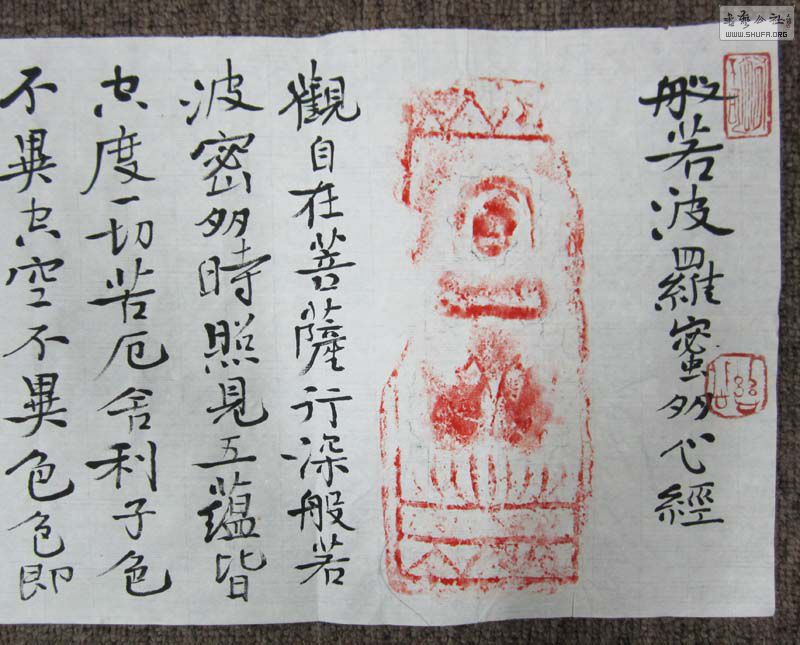 般若波羅蜜多心經
觀自在菩薩行深般若
波密多時照見五蘊皆
空度一切苦厄舍利子色
不異空空不異色色即
书艺公社
WWW.SHUFA.ORG